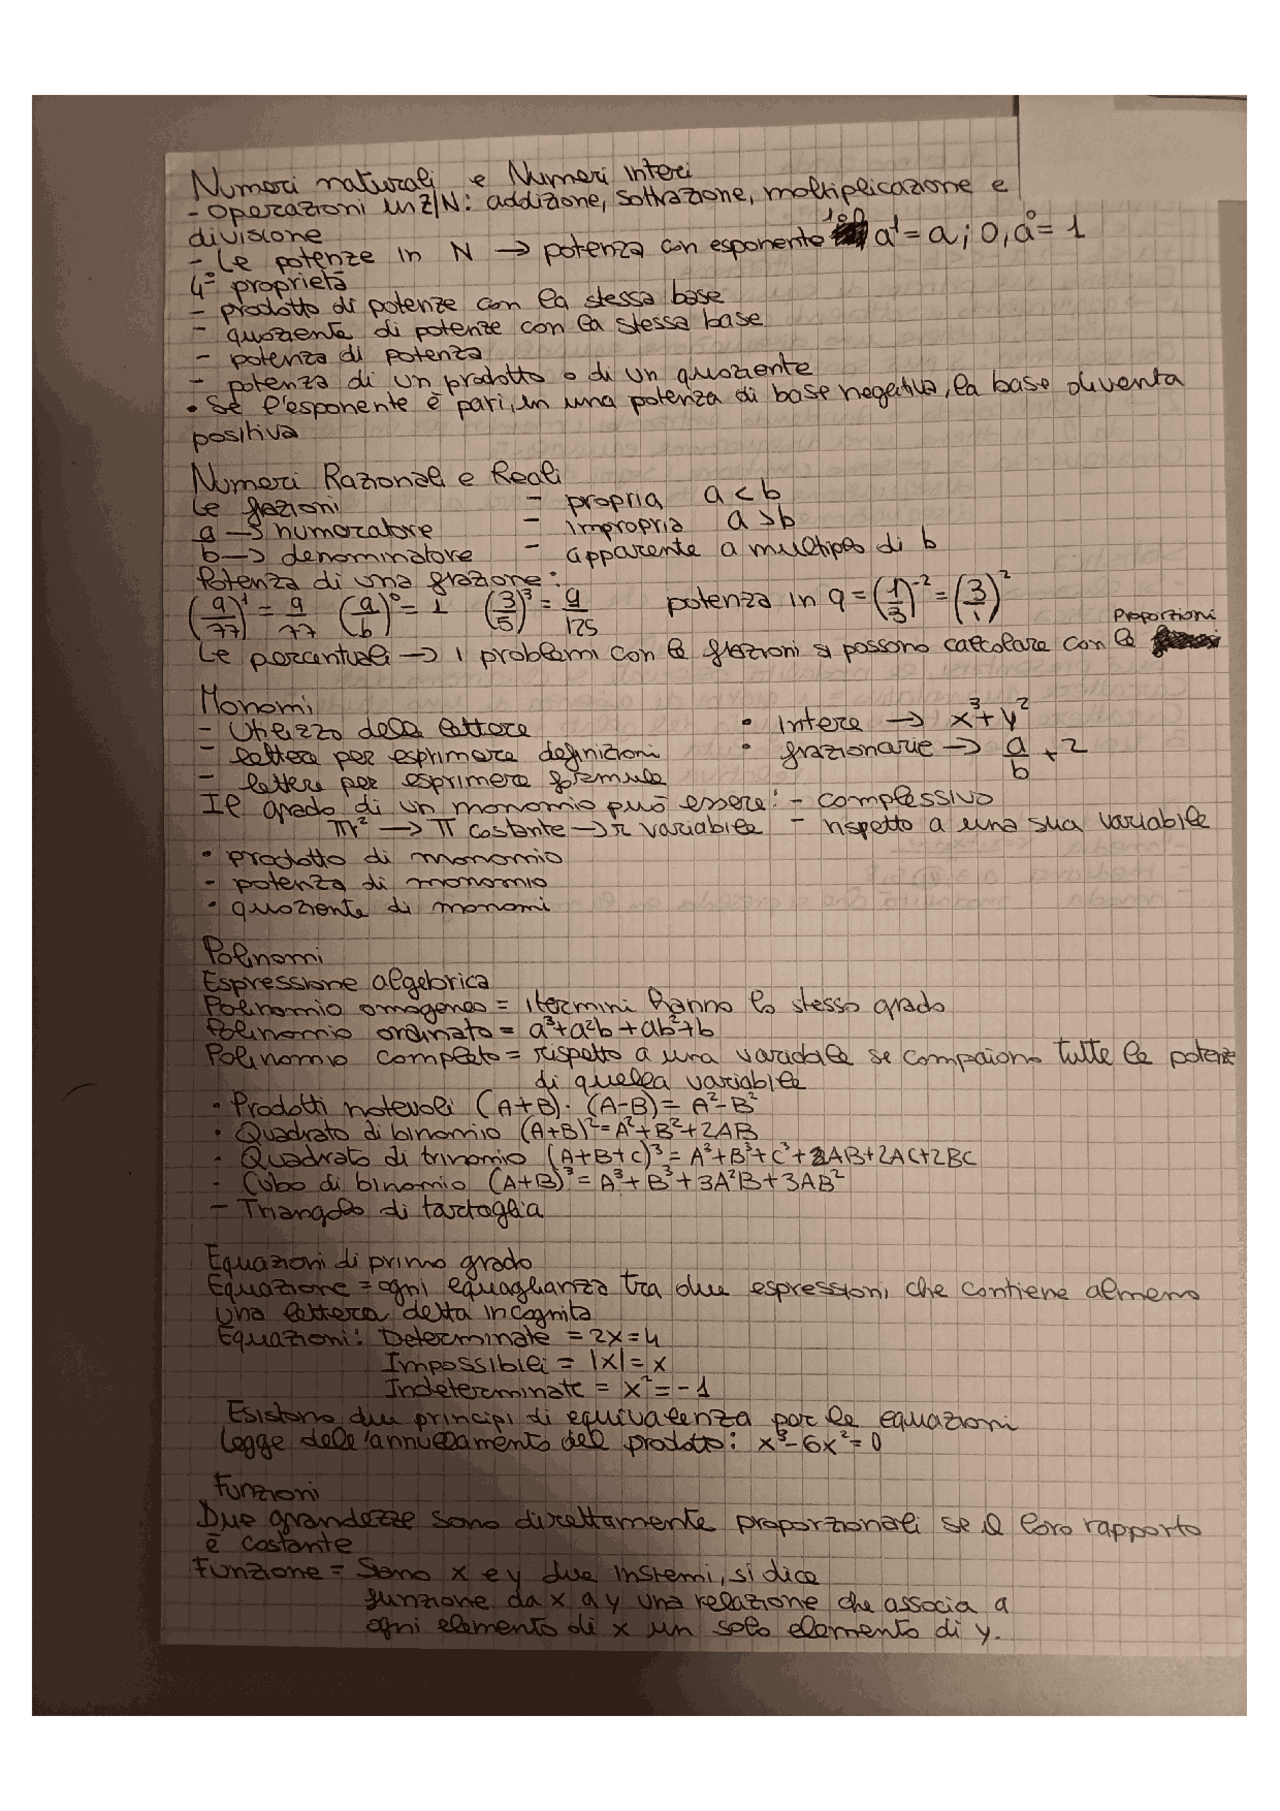 Numeri naturali e Numeri interi
- operazioni in Z/N: addizione, sottrazione, moltiplicazione e
divisione
- Le potenze in N → potenza con esponente 1 e 0 a¹ = a; 0, a⁰ = 1
4° proprietà
- prodotto di potenze con la stessa base
- quoziente di potenze con la stessa base
- potenza di potenza
- potenza di un prodotto o di un quoziente
• Se l'esponente è pari, in una potenza di base negativa, la base diventa
positiva
Numeri Razionali e Reali
Le frazioni - propria a < b
a → numeratore - impropria a > b
b → denominatore - apparente a multiplo di b
Potenza di una frazione:
(9/77)¹ = 9/77 (a/b)⁰ = 1 (3/5)³ = 9/125 potenza in q = (1/3)⁻² = (3/1)²
Le percentuali → i problemi con le frazioni si possono calcolare con le proporzioni
Monomi
- Utilizzo delle lettere • intere → x³ + y²
- lettere per esprimere definizioni • frazionarie → a/b + 2
- lettere per esprimere formule
Il grado di un monomio può essere: - complessivo
πr² → π costante → r variabile - rispetto a una sua variabile
• prodotto di monomio
- potenza di monomio
• quoziente di monomi
Polinomi
Espressione algebrica
Polinomio omogeneo = i termini hanno lo stesso grado
Polinomio ordinato = a³+a²b+ab²+b
Polinomio completo = rispetto a una variabile se compaiono tutte le potenze
di quella variabile
• Prodotti notevoli (A+B)·(A-B) = A²-B²
• Quadrato di binomio (A+B)² = A²+B²+2AB
• Quadrato di trinomio (A+B+C)³ = A³+B³+C³+2AB+2AC+2BC
- Cubo di binomio (A+B)³ = A³+B³+3A²B+3AB²
- Triangolo di tartaglia
Equazioni di primo grado
Equazione = ogni equaglianza tra due espressioni che contiene almeno
una lettera detta incognita
Equazioni: Determinate = 2x=4
Impossibili = |x|=x
Indeterminate = x²=-1
Esistono due principi di equivalenza per le equazioni
Legge dell'annullamento del prodotto: x³-6x²=0
Funzioni
Due grandezze sono direttamente proporzionali se il loro rapporto
è costante
Funzione = Sono x e y due insiemi, si dice
funzione da x a y una relazione che associa a
ogni elemento di x un solo elemento di y.